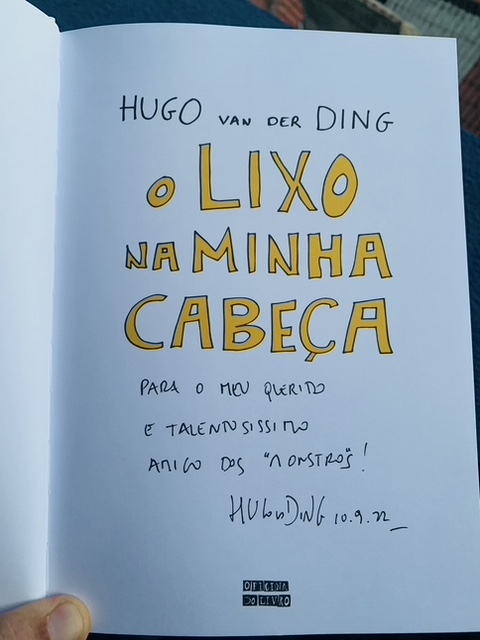 HUGO VAN DER DING
O LIXO
NA MINHA
CABEÇA
PARA O MEU QUERIDO
E TALENTOSISSIMO
AMIGO DOS "MONSTROS"!
HUGO VD DING 10.9.22
OFICINA
DO LIVRO